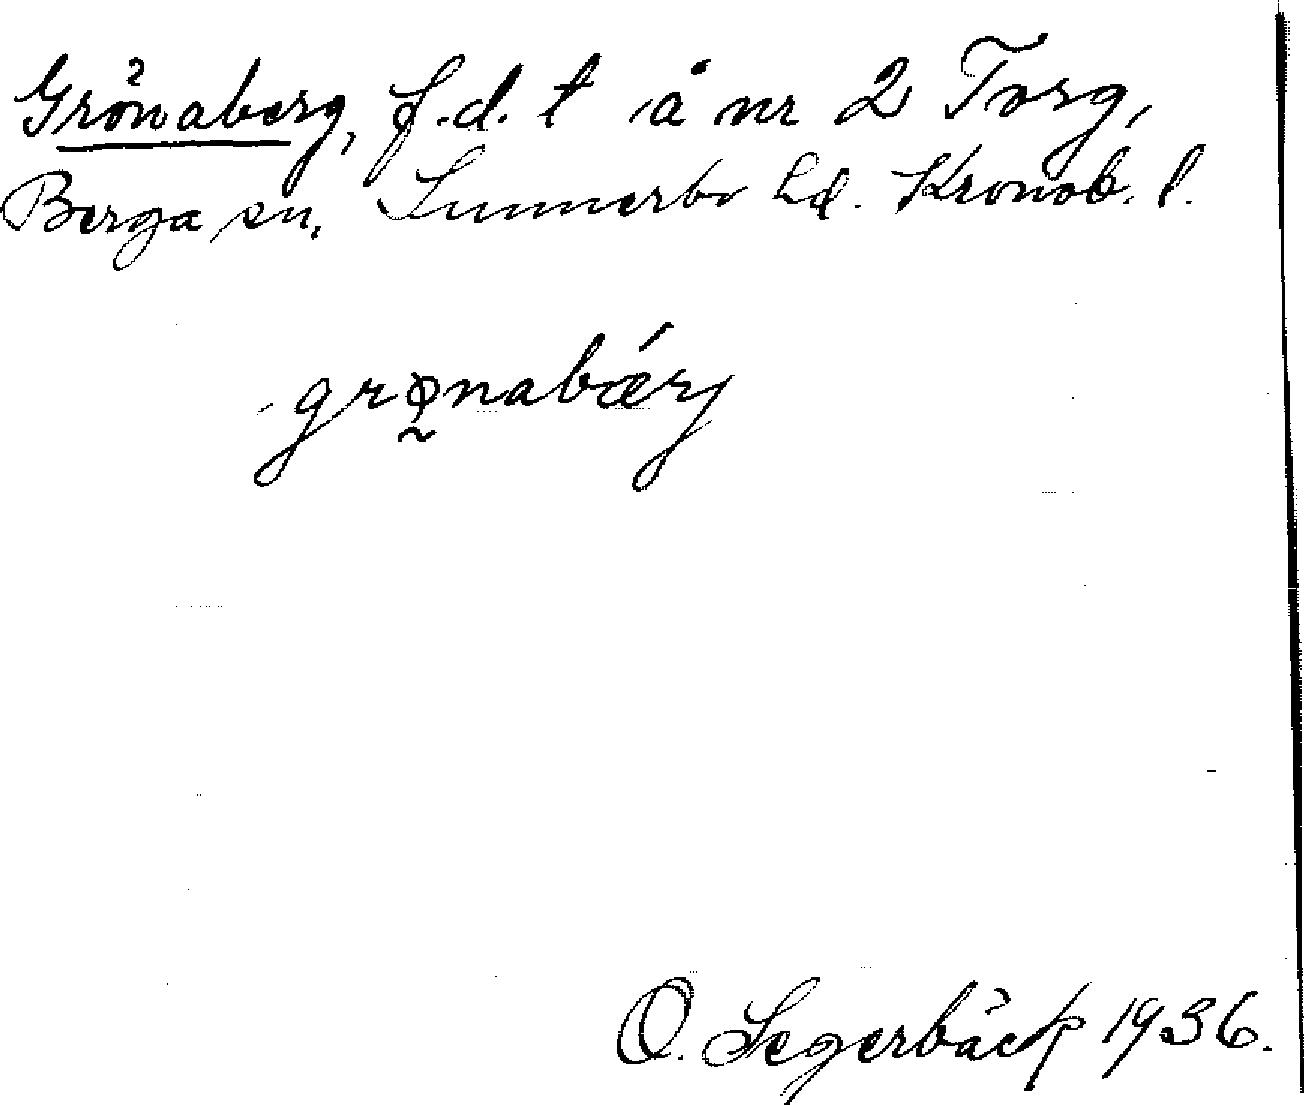 Grönaberg, f.d. t å nr 2 Torg,
Berga sn, Sunnerbo hd. Kronob. l.
grø̰nabǽrj
O. Segerbäck 1936.